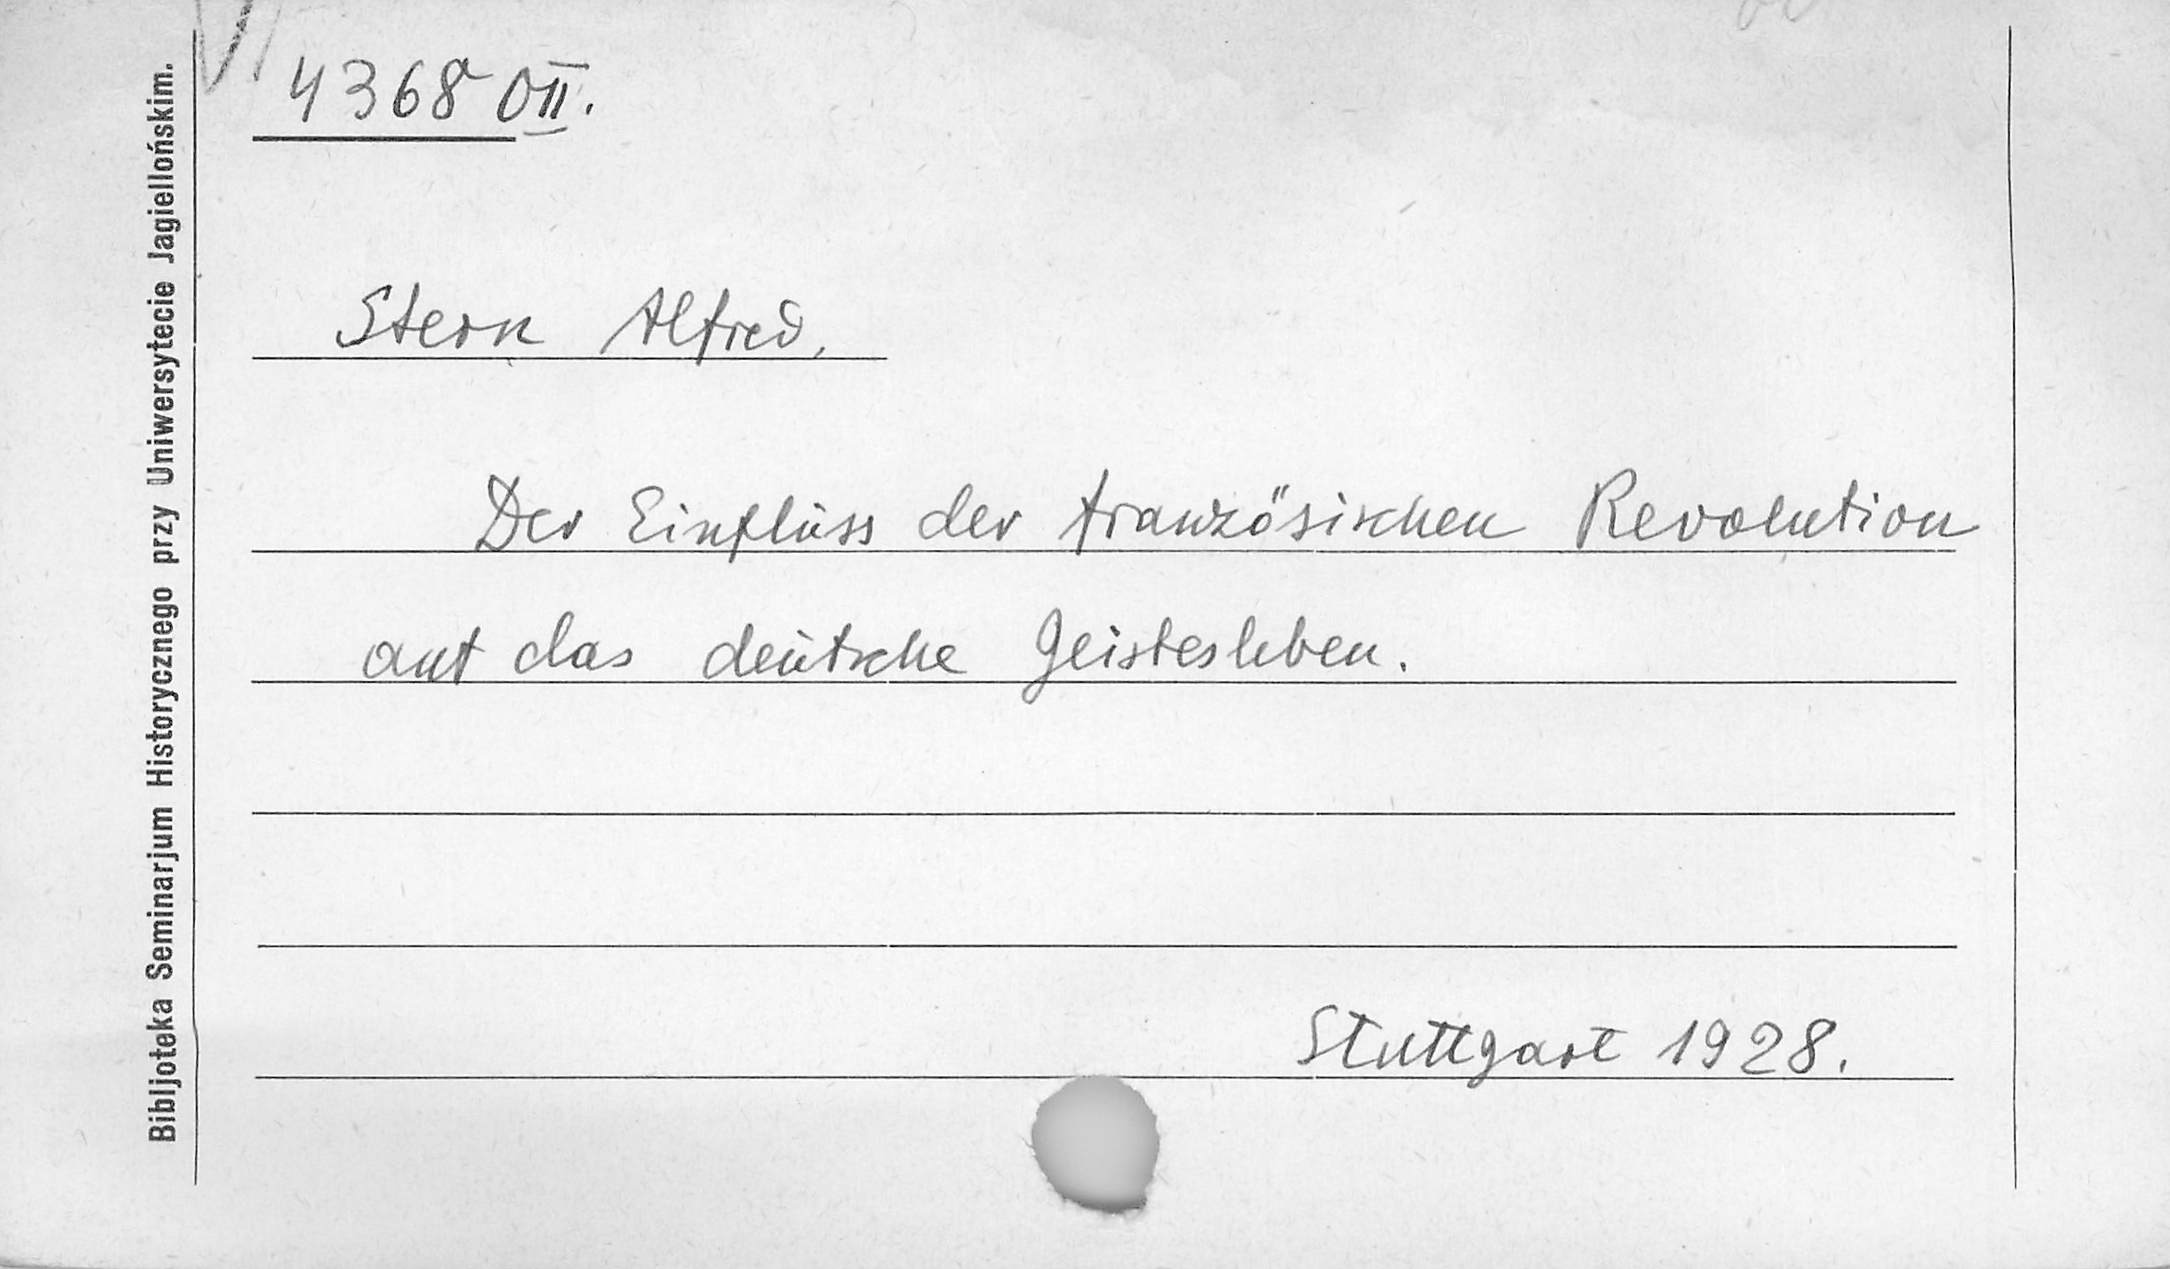 4368 OII.
Stern Alfred.
Der Einfluss der französischen Revolution
auf das deutsche Geistesleben.
Stuttgart 1928.
Bibljoteka Seminarjum Historycznego przy Uniwersytecie Jagiellońskim.